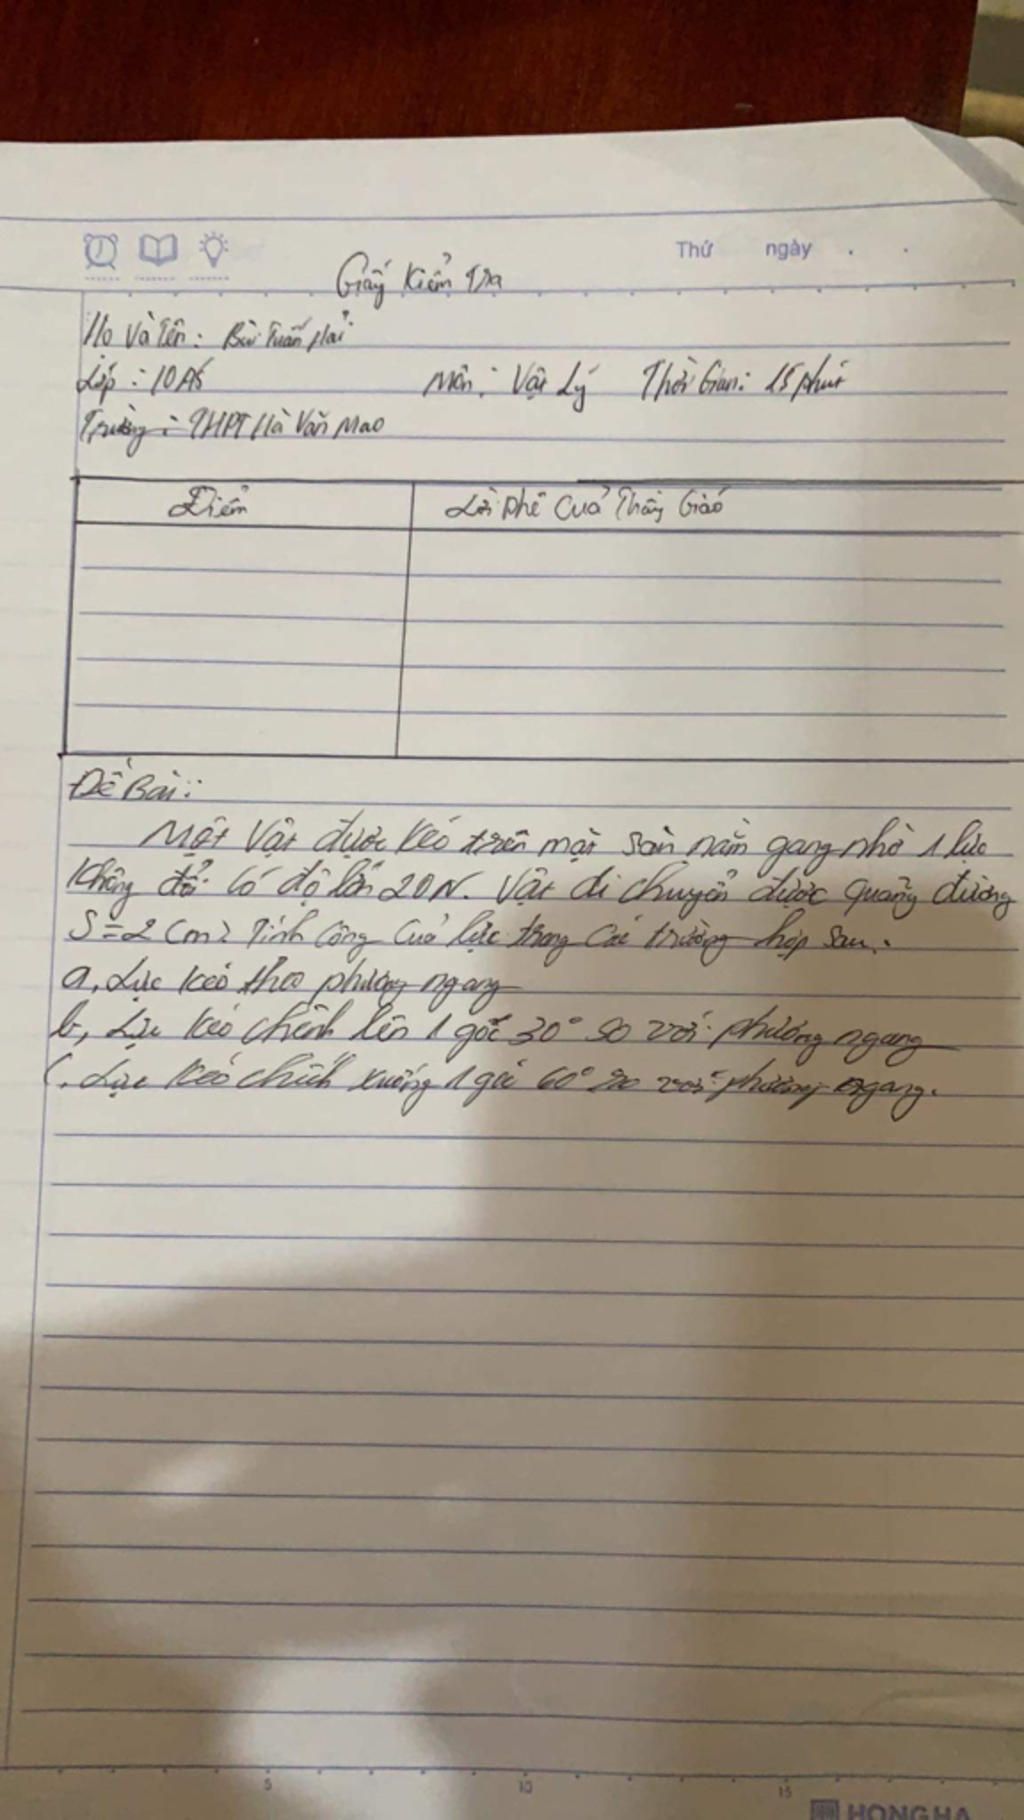 Thứ ngày . .
Giấy Kiểm Tra
Họ Và Tên: Bùi Tuấn Hải
Lớp: 10A5 Môn: Vật Lý Thời Gian: 15 phút
Trường: THPT Hà Văn Mao
Điểm Lời Phê Của Thầy Giáo
Đề Bài:
Một Vật được kéo trên mặt sàn nằm gang nhờ 1 lực
không đổi có độ lớn 20N. Vật di chuyển được quãng đường
S=2(m) Tính công của lực trong các trường hợp sau.
a, Lực kéo theo phương ngang
b, Lực kéo chếnh lên 1 góc 30° so với phương ngang
c. Lực kéo chếch xuống 1 góc 60° so với phương ngang.
5 10 15
HONG HA